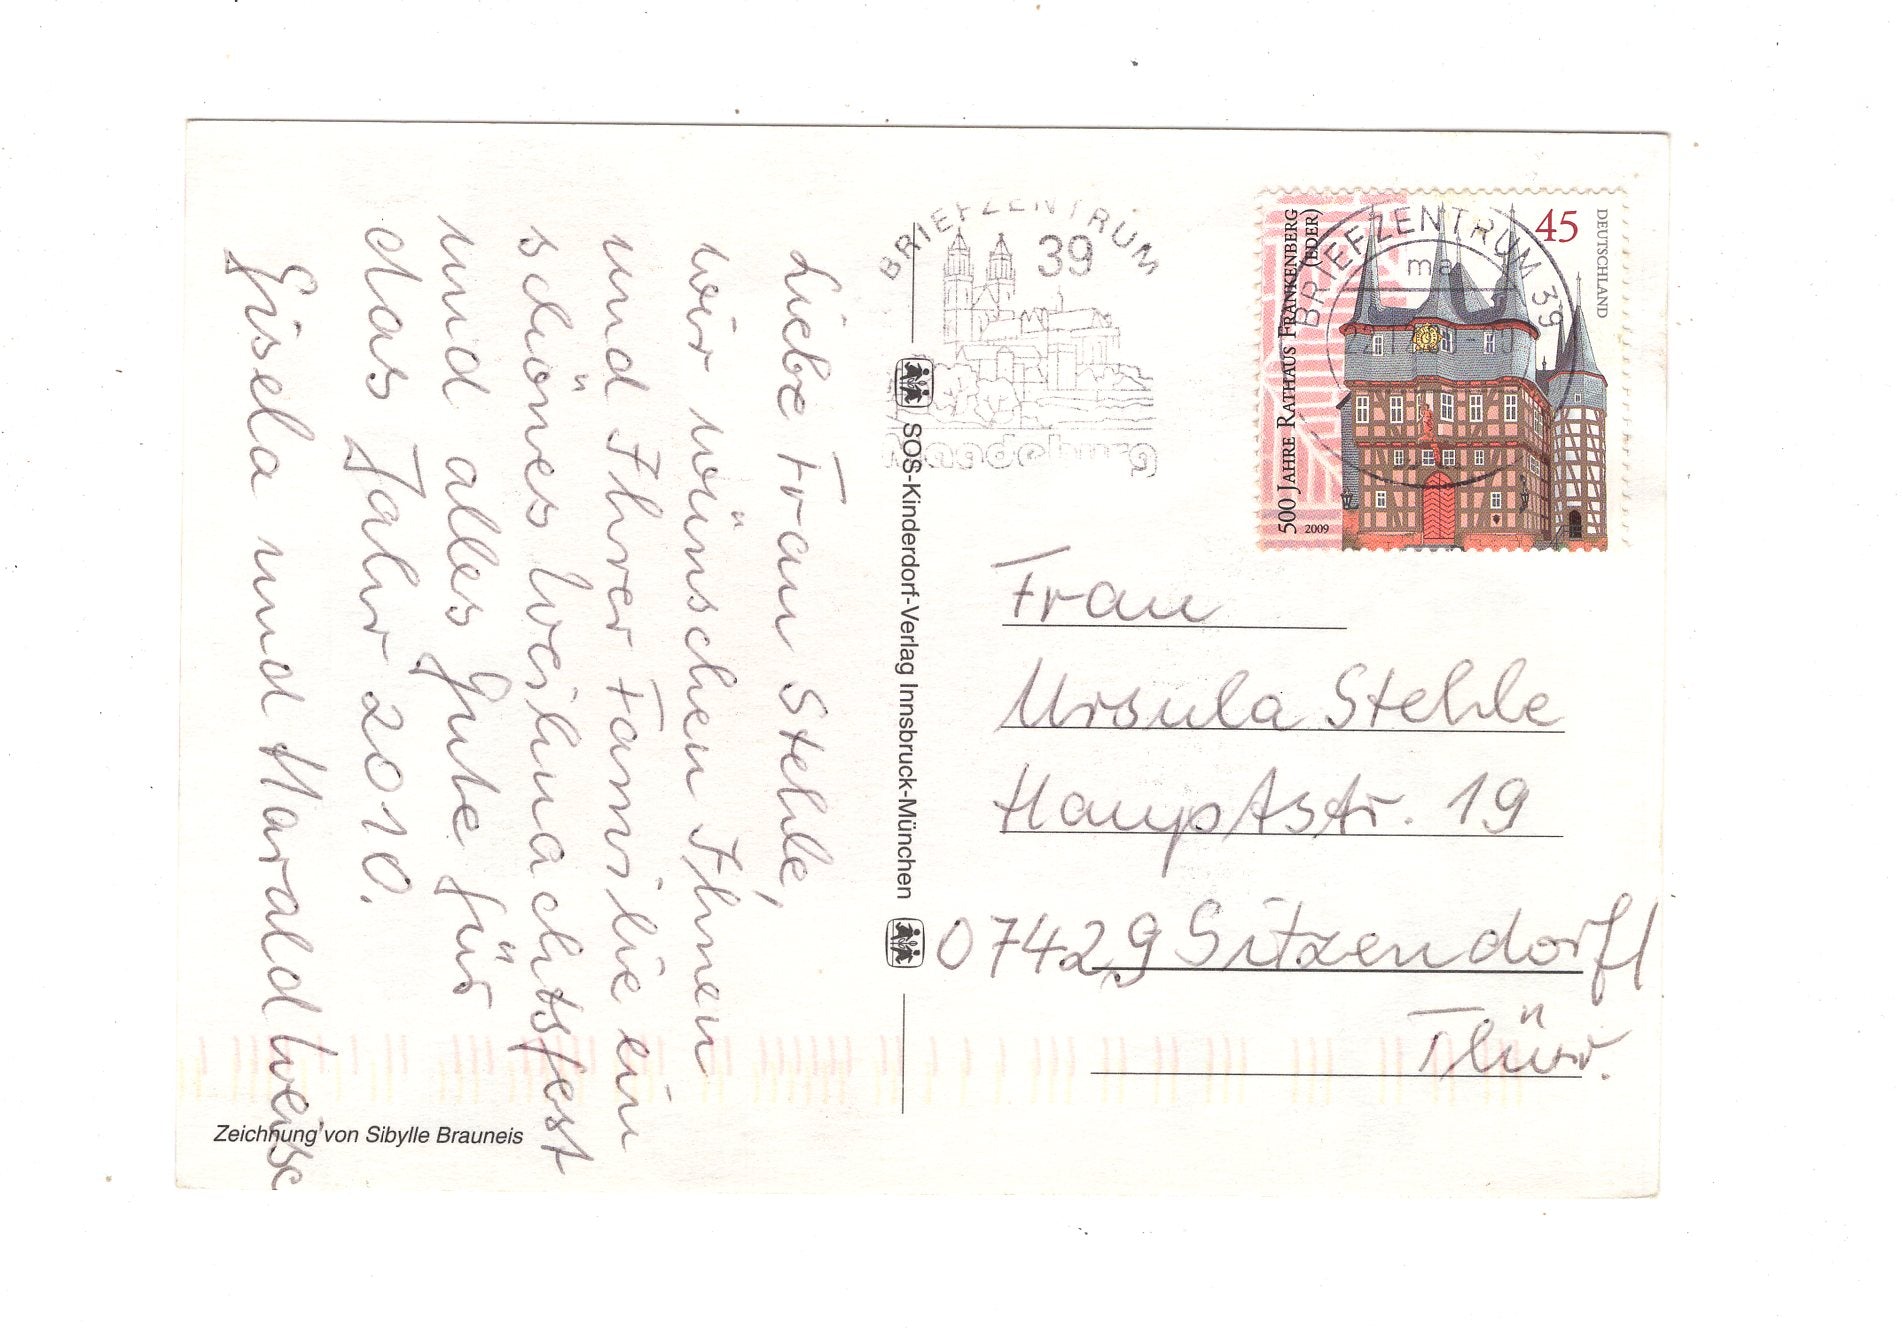 Liebe Frau Stehle,
wir wünschen Ihnen
und Ihrer Familie ein
schönes Weihnachtsfest
und alles Gute für
das Jahr 2010.
Gisela und Harald Weise
Zeichnung von Sibylle Brauneis
SOS-Kinderdorf-Verlag Innsbruck-München
BRIEFZENTRUM
39
Magdeburg
500 JAHRE RATHAUS FRANKENBERG
(EDER)
2009
45
DEUTSCHLAND
BRIEFZENTRUM 39
ma
Frau
Ursula Stehle
Hauptstr. 19
07429 Sitzendorf/
Thür.